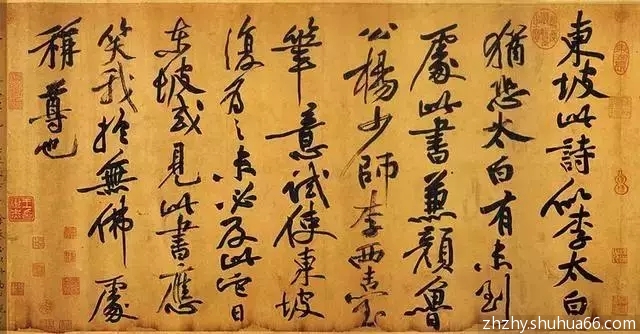 東坡此詩似李太白
猶恐太白有未到
處此書兼顏魯
公楊少師李西臺
筆意試使東坡
復為之未必及此它日
東坡或見此書應
笑我於無佛處
稱尊也
zhzhy.shuhua66.com